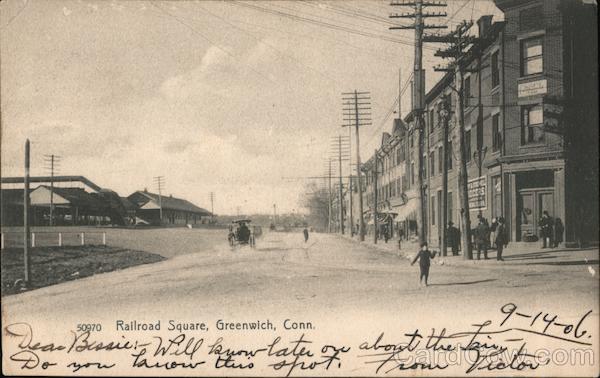 50970 Railroad Square, Greenwich, Conn.
9-14-06.
Dear Bessie:- Will know later on about the
Do you know this spot. From Victor
CardCow.com